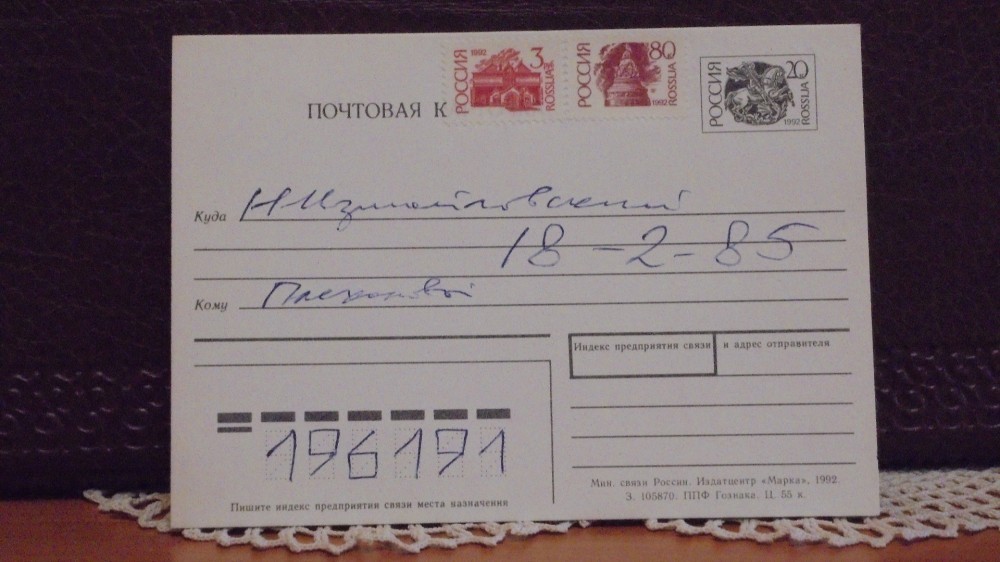 РОССИЯ 1992 3 ROSSIJA
РОССИЯ 80 1992 ROSSIJA
РОССИЯ 20 1992 ROSSIJA
ПОЧТОВАЯ К
Куда Н Измайловский
18-2-85
Кому
Индекс предприятия связи и адрес отправителя
196191
Пишите индекс предприятия связи места назначения
Мин. связи России. Издатцентр «Марка», 1992.
З. 105870. ППФ Гознака. Ц. 55 к.